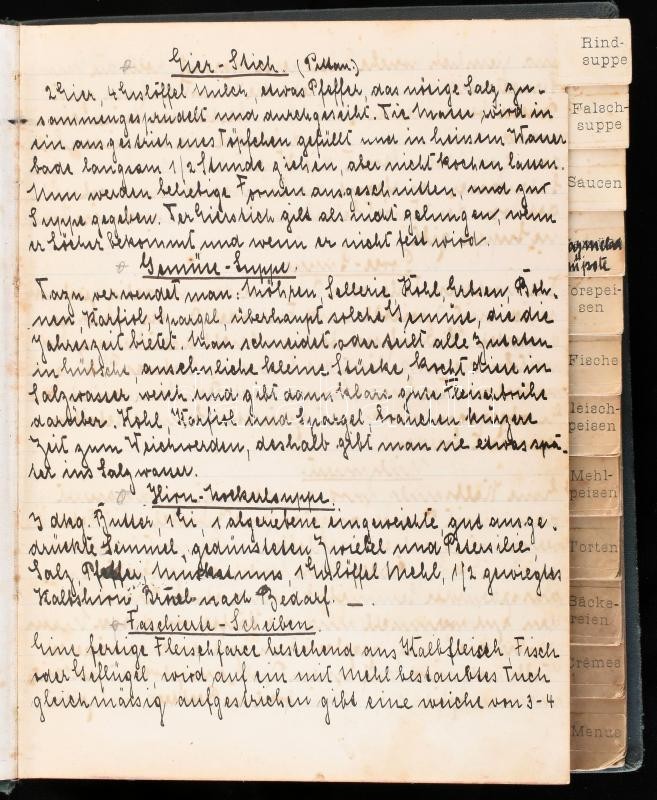 Eier-Stich.
2 Eier, 4 Esslöffel Milch, etwas Pfeffer, das nötige Salz zu-
sammengesprudelt und durchgeseiht. Die Masse wird in
ein ausgestrichenes Töpfchen gefüllt und in heissem Wasser
bade langsam 1/2 Stunde ziehen, aber nicht kochen lassen.
Nun werden beliebige Formen ausgeschnitten, und zur
Suppe gegeben. Der Eierstich gilt als nicht gelungen, wenn
er Löcher bekommt und wenn er nicht fest wird.
Gemüse-Suppe.
Dazu verwendet man: Möhren, Sellerie, Kohl, Erbsen, Boh-
nen, Karfiol, Spargel, überhaupt solche Gemüse, die die
Jahreszeit bietet. Man schneidet oder teilt alle Zutaten
in hübsche, ansehnliche kleine Stücke kocht diese in
Salzwasser weich und gibt dann klare gute Fleischbrühe
darüber. Kohl, Karfiol und Spargel brauchen kürzere
Zeit zum Weichwerden, deshalb gibt man sie etwas spä-
ter ins Salzwasser.
Hirn-Nockerlsuppe.
3 dkg. Butter, 1 Ei, 1 abgeriebene eingeweichte gut ausge-
drückte Semmel, gedünsteten Zwiebel und Petersilie
Salz, Pfeffer, Muskatnuss, 1 Esslöffel Mehl, 1/2 gewiegtes
Kalbshirn, Brösel nach Bedarf. —
Faschierte-Scheiben
Eine fertige Fleischfarce bestehend aus Kalbfleisch Fisch
oder Geflügel wird auf ein mit Mehl bestaubtes Tuch
gleichmässig aufgestrichen gibt eine weiche von 3-4
Rind-
suppe
Falsch-
suppe
Saucen
Vorspei-
sen
Fische
Fleisch-
speisen
Mehl-
speisen
Torten
Bäcke-
reien
Crêmes
Menus